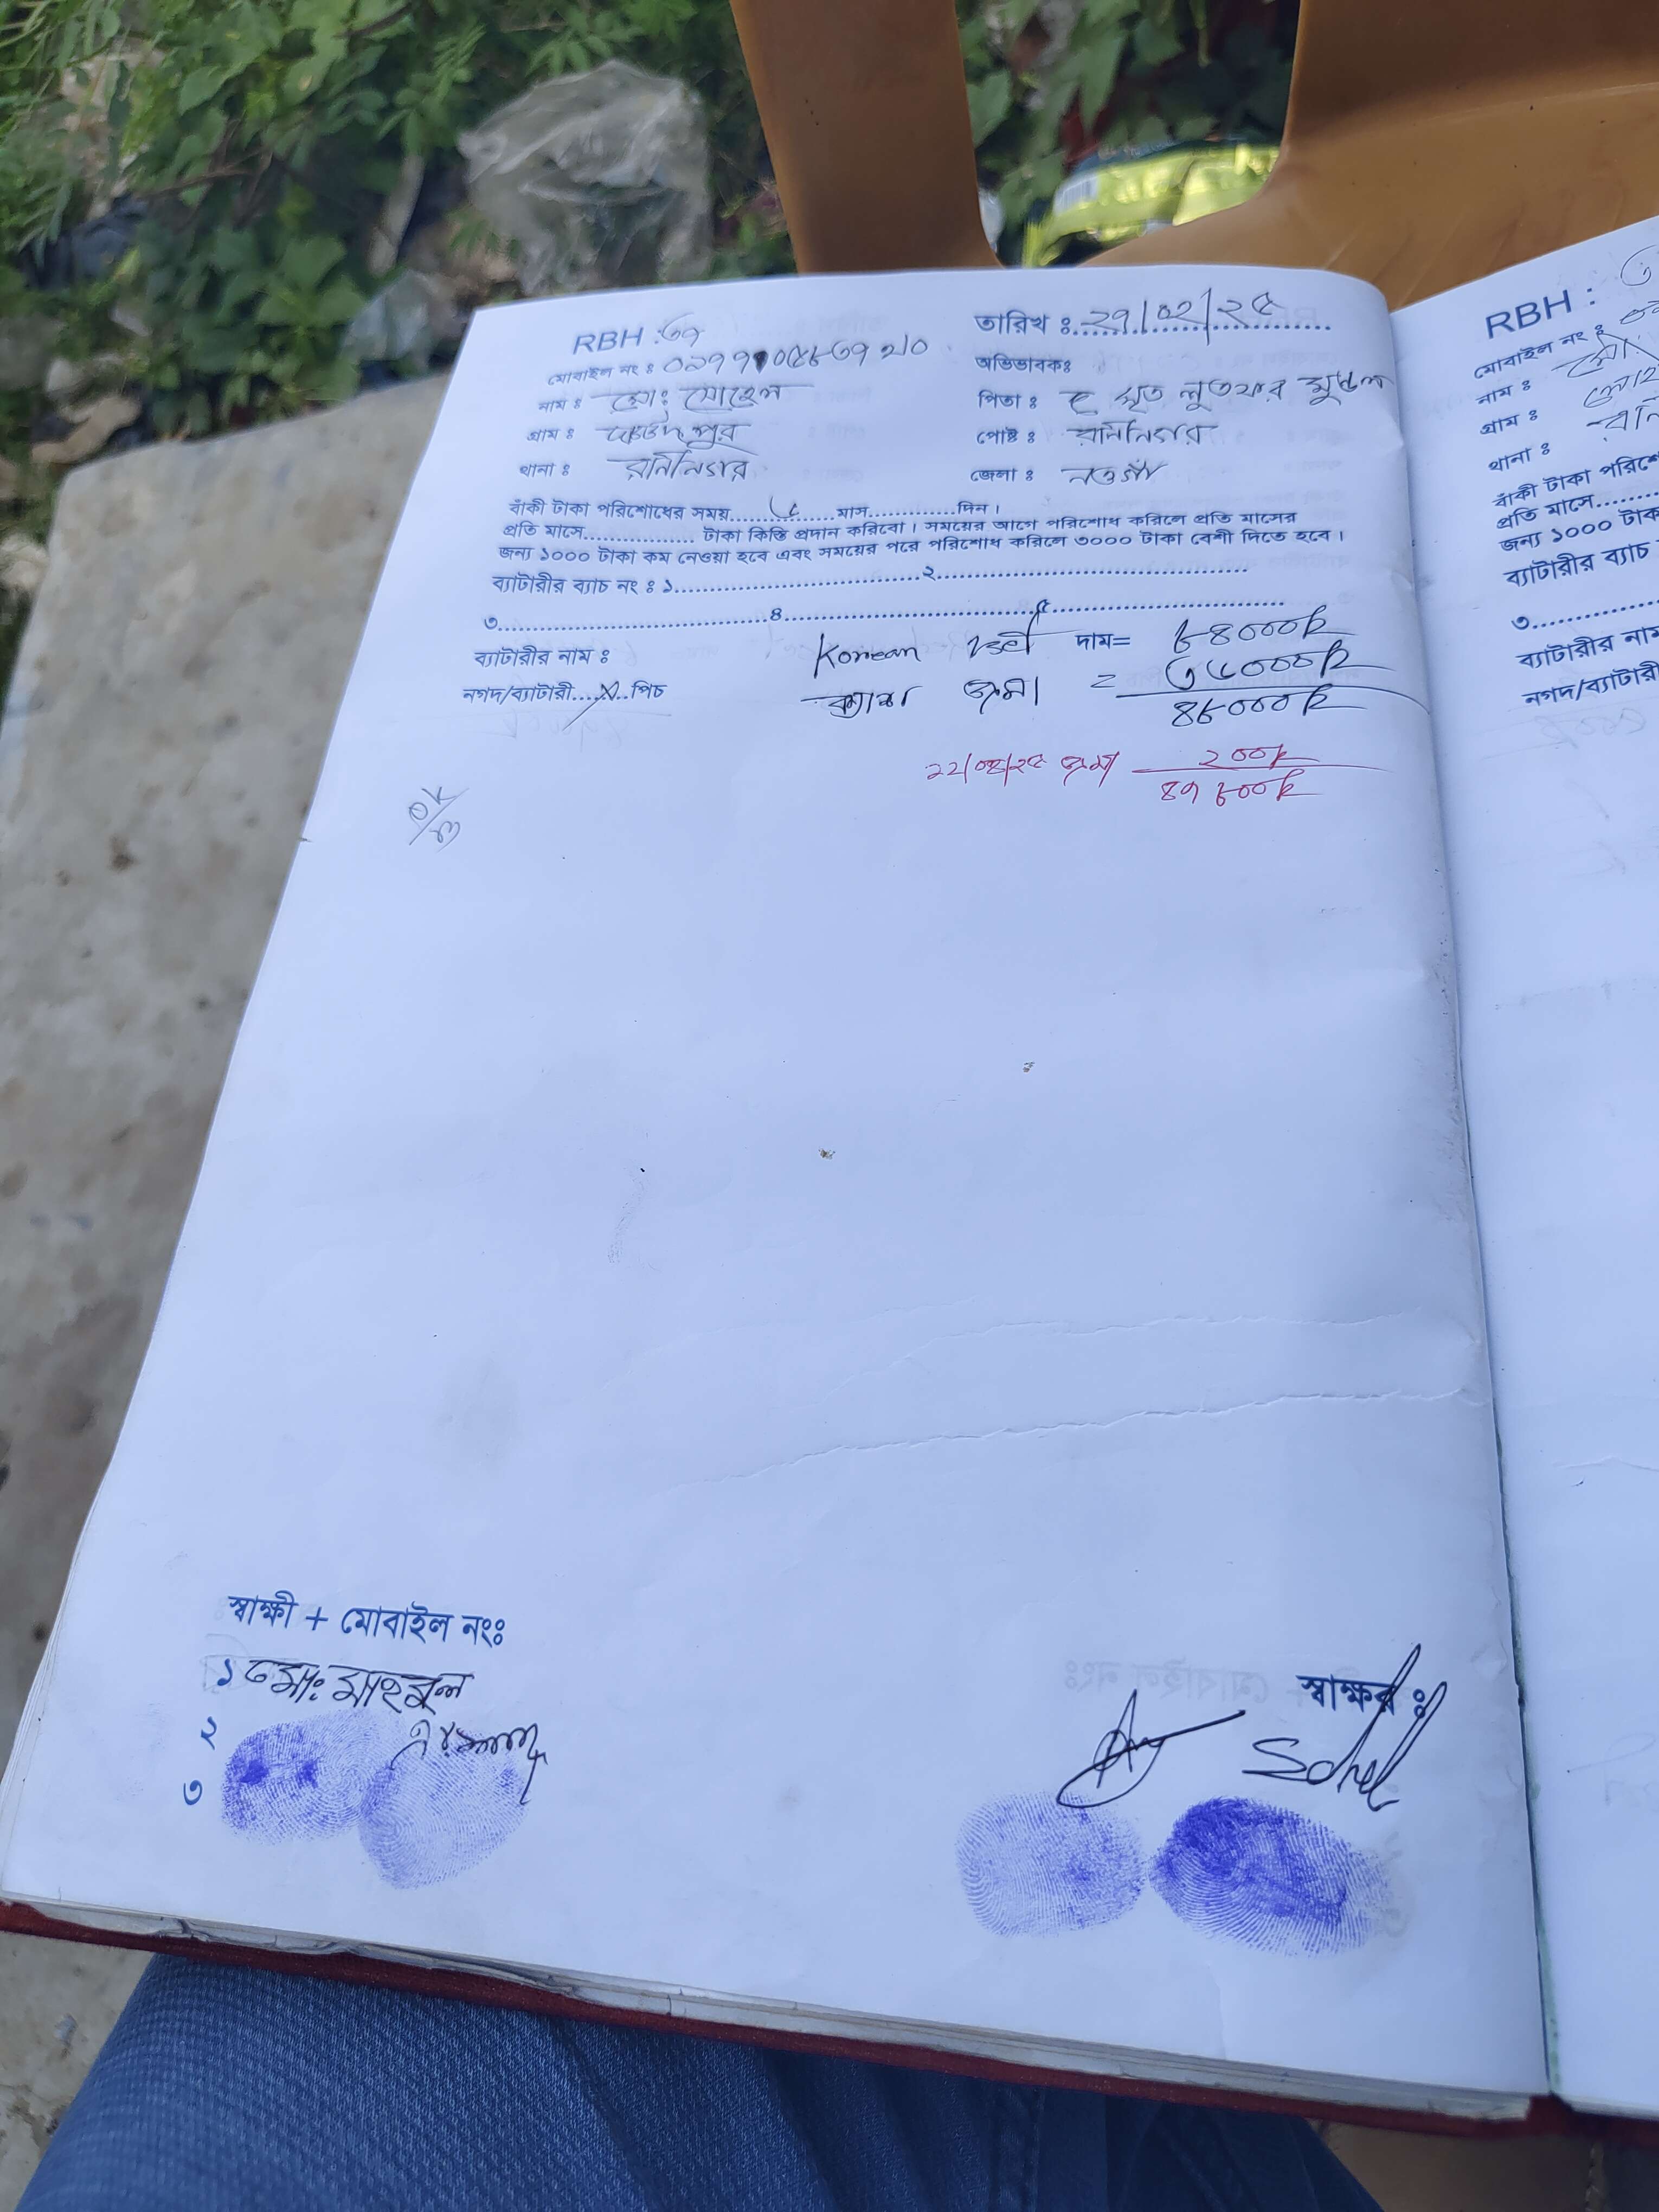 RBH : ৩৭
তারিখ ঃ ২৭/০২/২৫
মোবাইল নং ঃ
অভিভাবকঃ
নাম ঃ মোঃ সোহেল
পিতা ঃ মৃত লুতফর মন্ডল
গ্রাম ঃ
পোষ্ট ঃ রানীনগর
থানা ঃ রানীনগর
জেলা ঃ নওগাঁ
বাঁকী টাকা পরিশোধের সময়..............মাস.............দিন।
প্রতি মাসে................ টাকা কিস্তি প্রদান করিবো। সময়ের আগে পরিশোধ করিলে প্রতি মাসের
জন্য ১০০০ টাকা কম নেওয়া হবে এবং সময়ের পরে পরিশোধ করিলে ৩০০০ টাকা বেশী দিতে হবে।
ব্যাটারীর ব্যাচ নং ঃ ১....................................২..............................................
৩.......................................৪.....................................৫...................................
ব্যাটারীর নাম ঃ Korean দাম= ৮৪০০০
নগদ/ব্যাটারী..........পিচ ক্যাশ জমা = ৩৬০০০
৪৮০০০
২২/০৪/২৫ জমা ২০০
৪৭৮০০
OK
স্বাক্ষী + মোবাইল নংঃ
১ মোঃ
২
৩
স্বাক্ষর ঃ
Sohel
RBH :
মোবাইল নং ঃ
নাম ঃ মো
গ্রাম ঃ
থানা ঃ
বাঁকী টাকা
প্রতি মাসে........
জন্য ১০০০
ব্যাটারীর ব্যাচ
৩..............
ব্যাটারীর
নগদ/ব্যাটারী